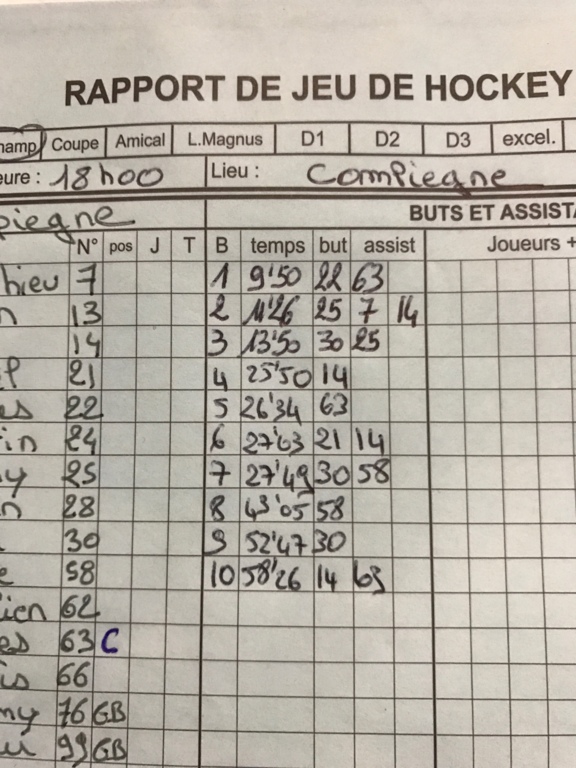 RAPPORT DE JEU DE HOCKEY
hamp Coupe Amical L.Magnus D1 D2 D3 excel.
eure : 18h00 Lieu : Compiegne
piegne BUTS ET ASSISTA
N° pos J T B temps but assist Joueurs +
hieu 7 1 9'50 22 63
n 13 2 11'26 25 7 14
14 3 13'50 30 25
21 4 25'50 14
es 22 5 26'34 63
in 24 6 27'03 21 14
y 25 7 27'49 30 58
n 28 8 43'05 58
30 9 52'47 30
e 58 10 58'26 14 63
ien 62
es 63 C
is 66
my 76 GB
u 99 GB